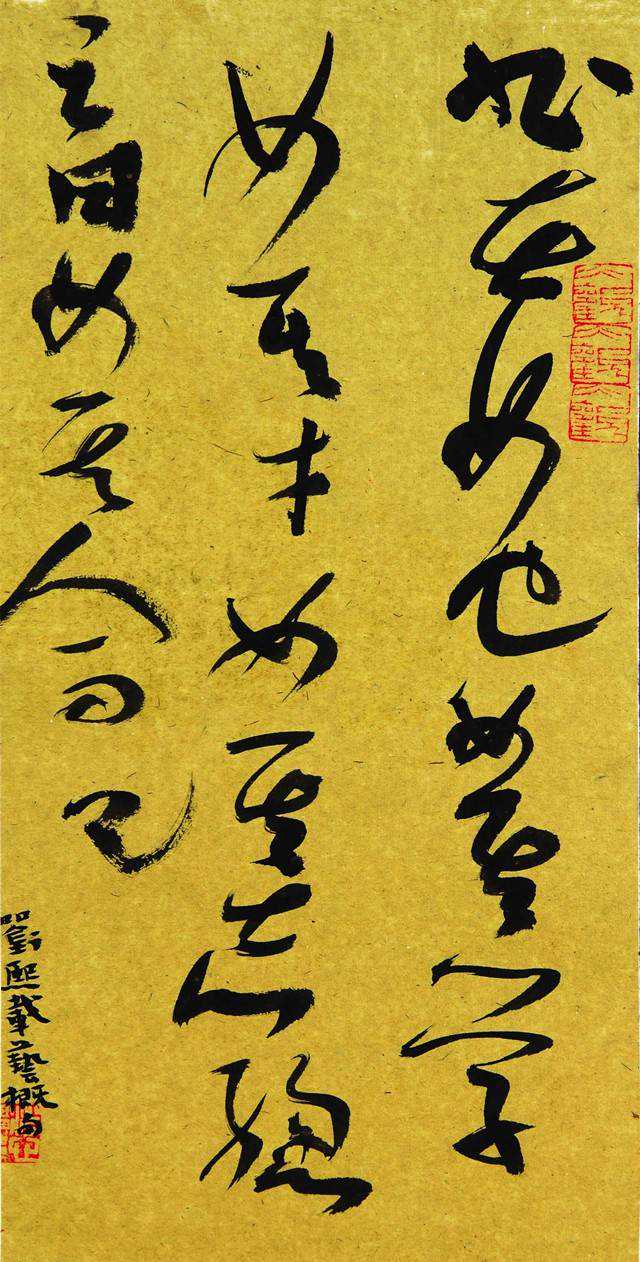 書者如也如其學
如其才如其志總
之曰如其人而已
劉熙載藝概句